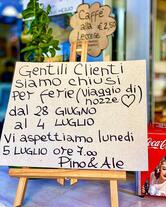 Caffè
alla
Leccese
€ 2,50
Gentili Clienti
siamo chiusi
per ferie (viaggio di
nozze ♡)
dal 28 GIUGNO
al 4 LUGLIO
Vi aspettiamo lunedì
5 LUGLIO ore 7.00
Pino & Ale
Coca-Cola